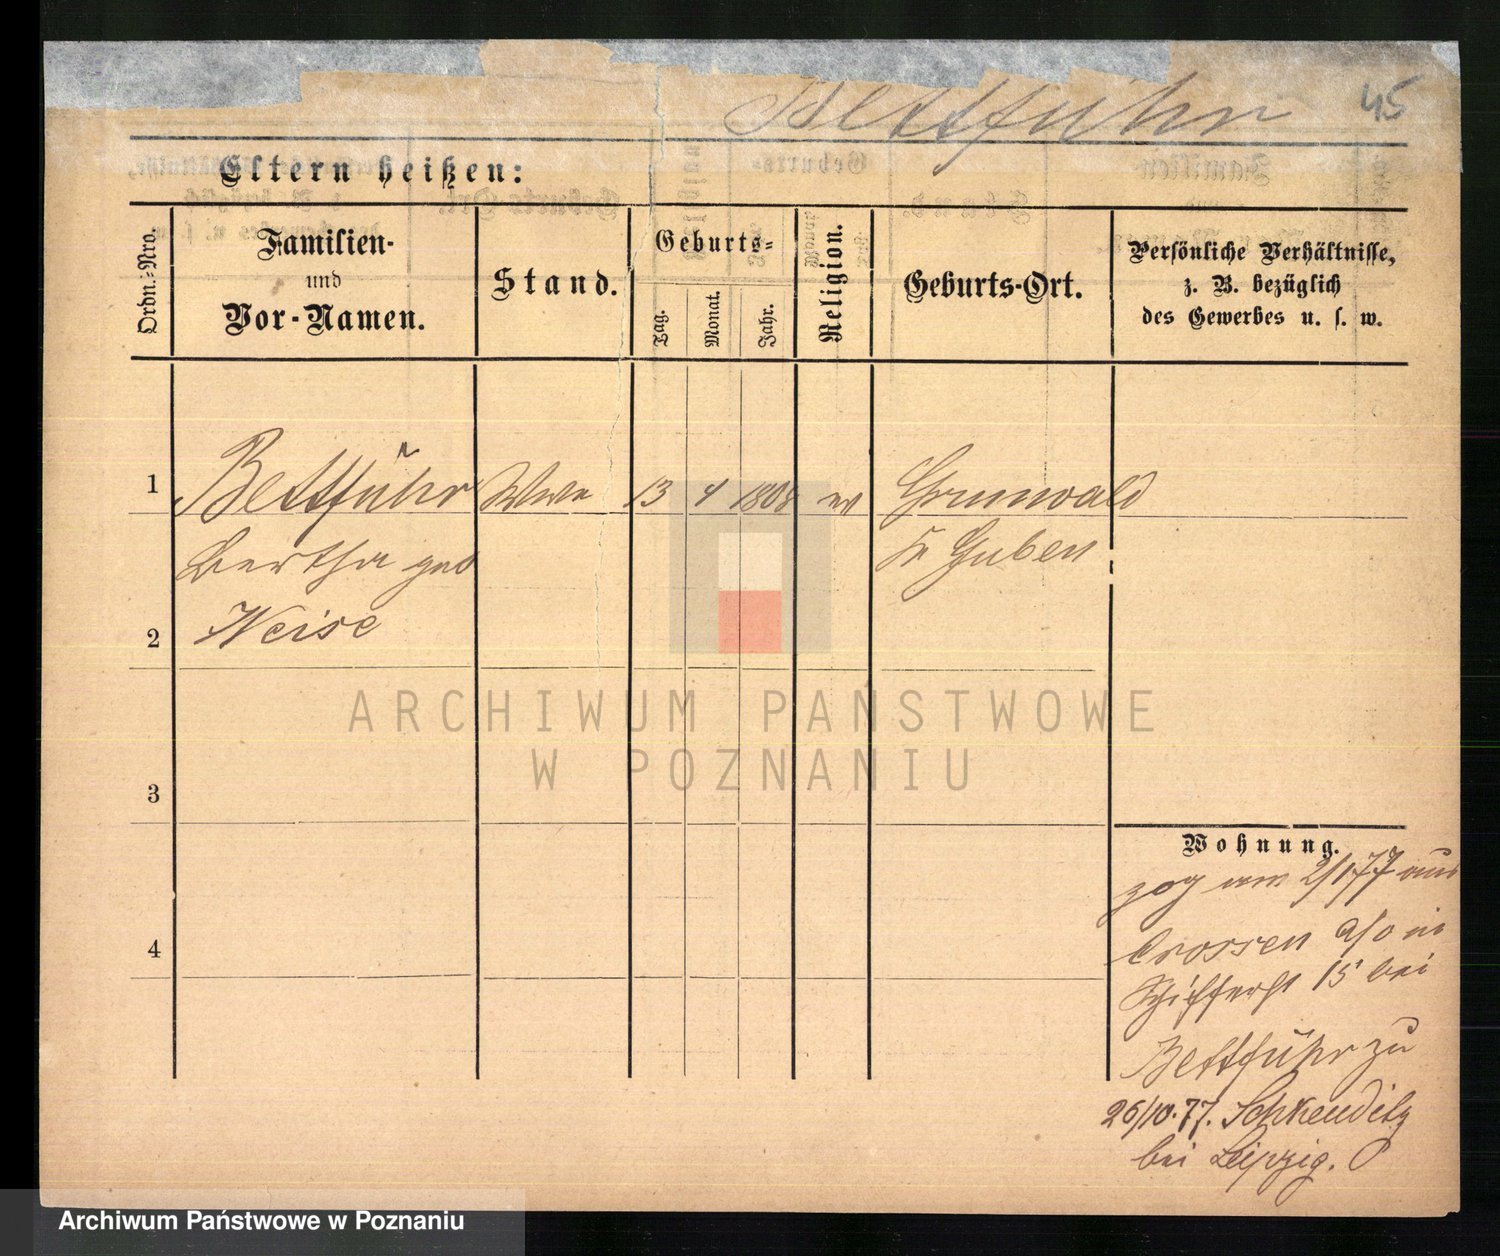 Bettführ
45
Eltern heißen:
Ordn.-Nro.
Familien-
und
Vor-Namen.
Stand.
Geburts-
Tag.
Monat.
Jahr.
Religion.
Geburts-Ort.
Persönliche Verhältnisse,
z. B. bezüglich
des Gewerbes u. s. w.
1
Bettführ Wwe 13 4 1808 ev Grunwald
Bertha geb Kr Guben
2
Weise
ARCHIWUM PAŃSTWOWE
W POZNANIU
3
Wohnung.
zog am 2/1 77 aus
4
Crossen a/o in
Schifferst 15 bei
Bettführ zu
26/10.77. Schkeuditz
bei Leipzig.
Archiwum Państwowe w Poznaniu